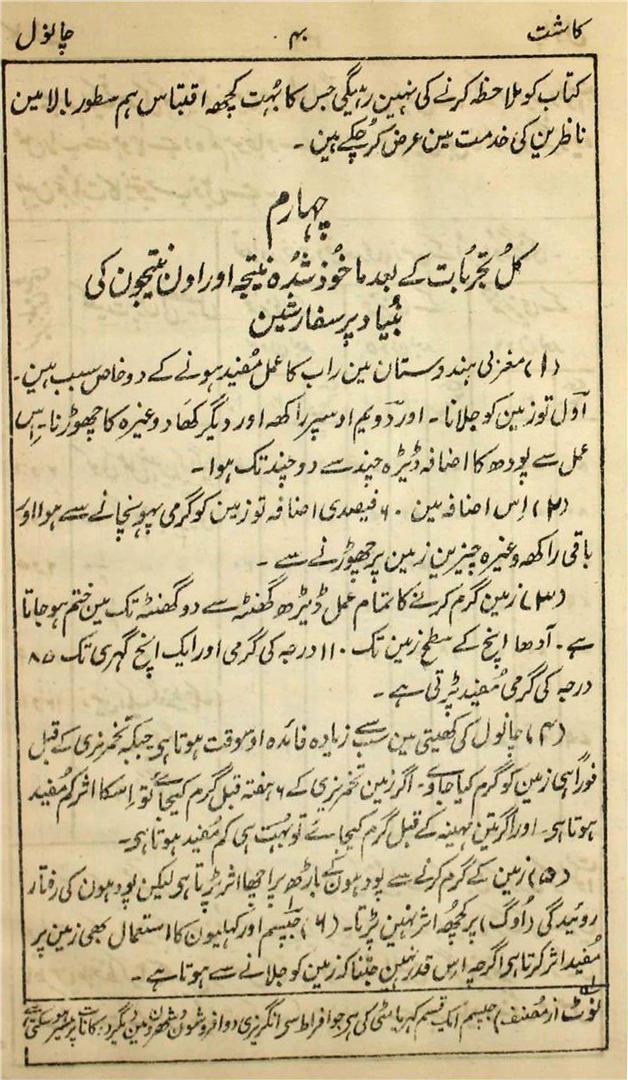 کاشت ۴۰ چانول
کتاب کو ملاحظہ کرنے کی نہین رہیگی جس کا بہت کچھ اقتباس ہم سطور بالا مین
ناظرین کی خدمت مین عرض کر چکے ہین ۔
چہارم
کل تجربات کے بعد ماخوذ شدہ نتیجہ اور اون نتیجون کی
بنیاد پر سفارشین
(۱) مغربی ہندوستان مین راب کا عمل مفید ہونے کے دو خاص سبب ہین ۔
اول تو زمین کو جلانا ۔ اور دویم اوسپر راکھ اور دیگر کھاد وغیرہ کا چھوڑنا ۔ اِس
عمل سے پودھ کا اضافہ ڈیڑہ چند سے دو چند تک ہوا ۔
(۲) اِس اضافہ مین ۶۰ فیصدی اضافہ تو زمین کو گرمی پہونچانے سے ہوا اور
باقی راکھ وغیرہ چیزین زمین پر چھوڑنے سے ۔
(۳) زمین گرم کرنے کا تمام عمل ڈیڑھ گھنٹہ سے دو گھنٹہ تک مین ختم ہو جاتا
ہے ۔ آدھا اِنچ کے سطح زمین تک ۱۱۰ درجہ کی گرمی اور ایک اِنچ گہری تک ۸۵
درجہ کی گرمی مفید پڑتی ہے ۔
(۴) چانول کی کھیتی مین سب سے زیادہ فائدہ اوسوقت ہوتا ہی جبکہ تخمریزی کے قبل
فوراً ہی زمین کو گرم کیا جاوے ۔ اگر زمین تخمریزی کے ۶ ہفتہ قبل گرم کیجائے تو اِسکا اثر کم مفید
ہوتا ہی ۔ اور اگر تین مہینہ کے قبل گرم کیجائے تو بہت ہی کم مفید ہوتا ہی ۔
(۵) زمین کے گرم کرنے سے پودہون کے باڑھ پر اچھا اثر پڑتا ہی لیکن پودہون کی رفتار
روئیدگی (اُوگ) پر کچھ اثر نہین پڑتا ۔ (۶) جپسم اور کہلیون کا استعمال بھی زمین پر
مفید اثر کرتا ہی اگرچہ اِس قدر نہین جتنا کہ زمین کو جلانے سے ہوتا ہے ۔
نوٹ از مصنف) جپسم ایک قسم کہریا مٹی کی ہی جو افراط سے انگریزی دوا فروشون